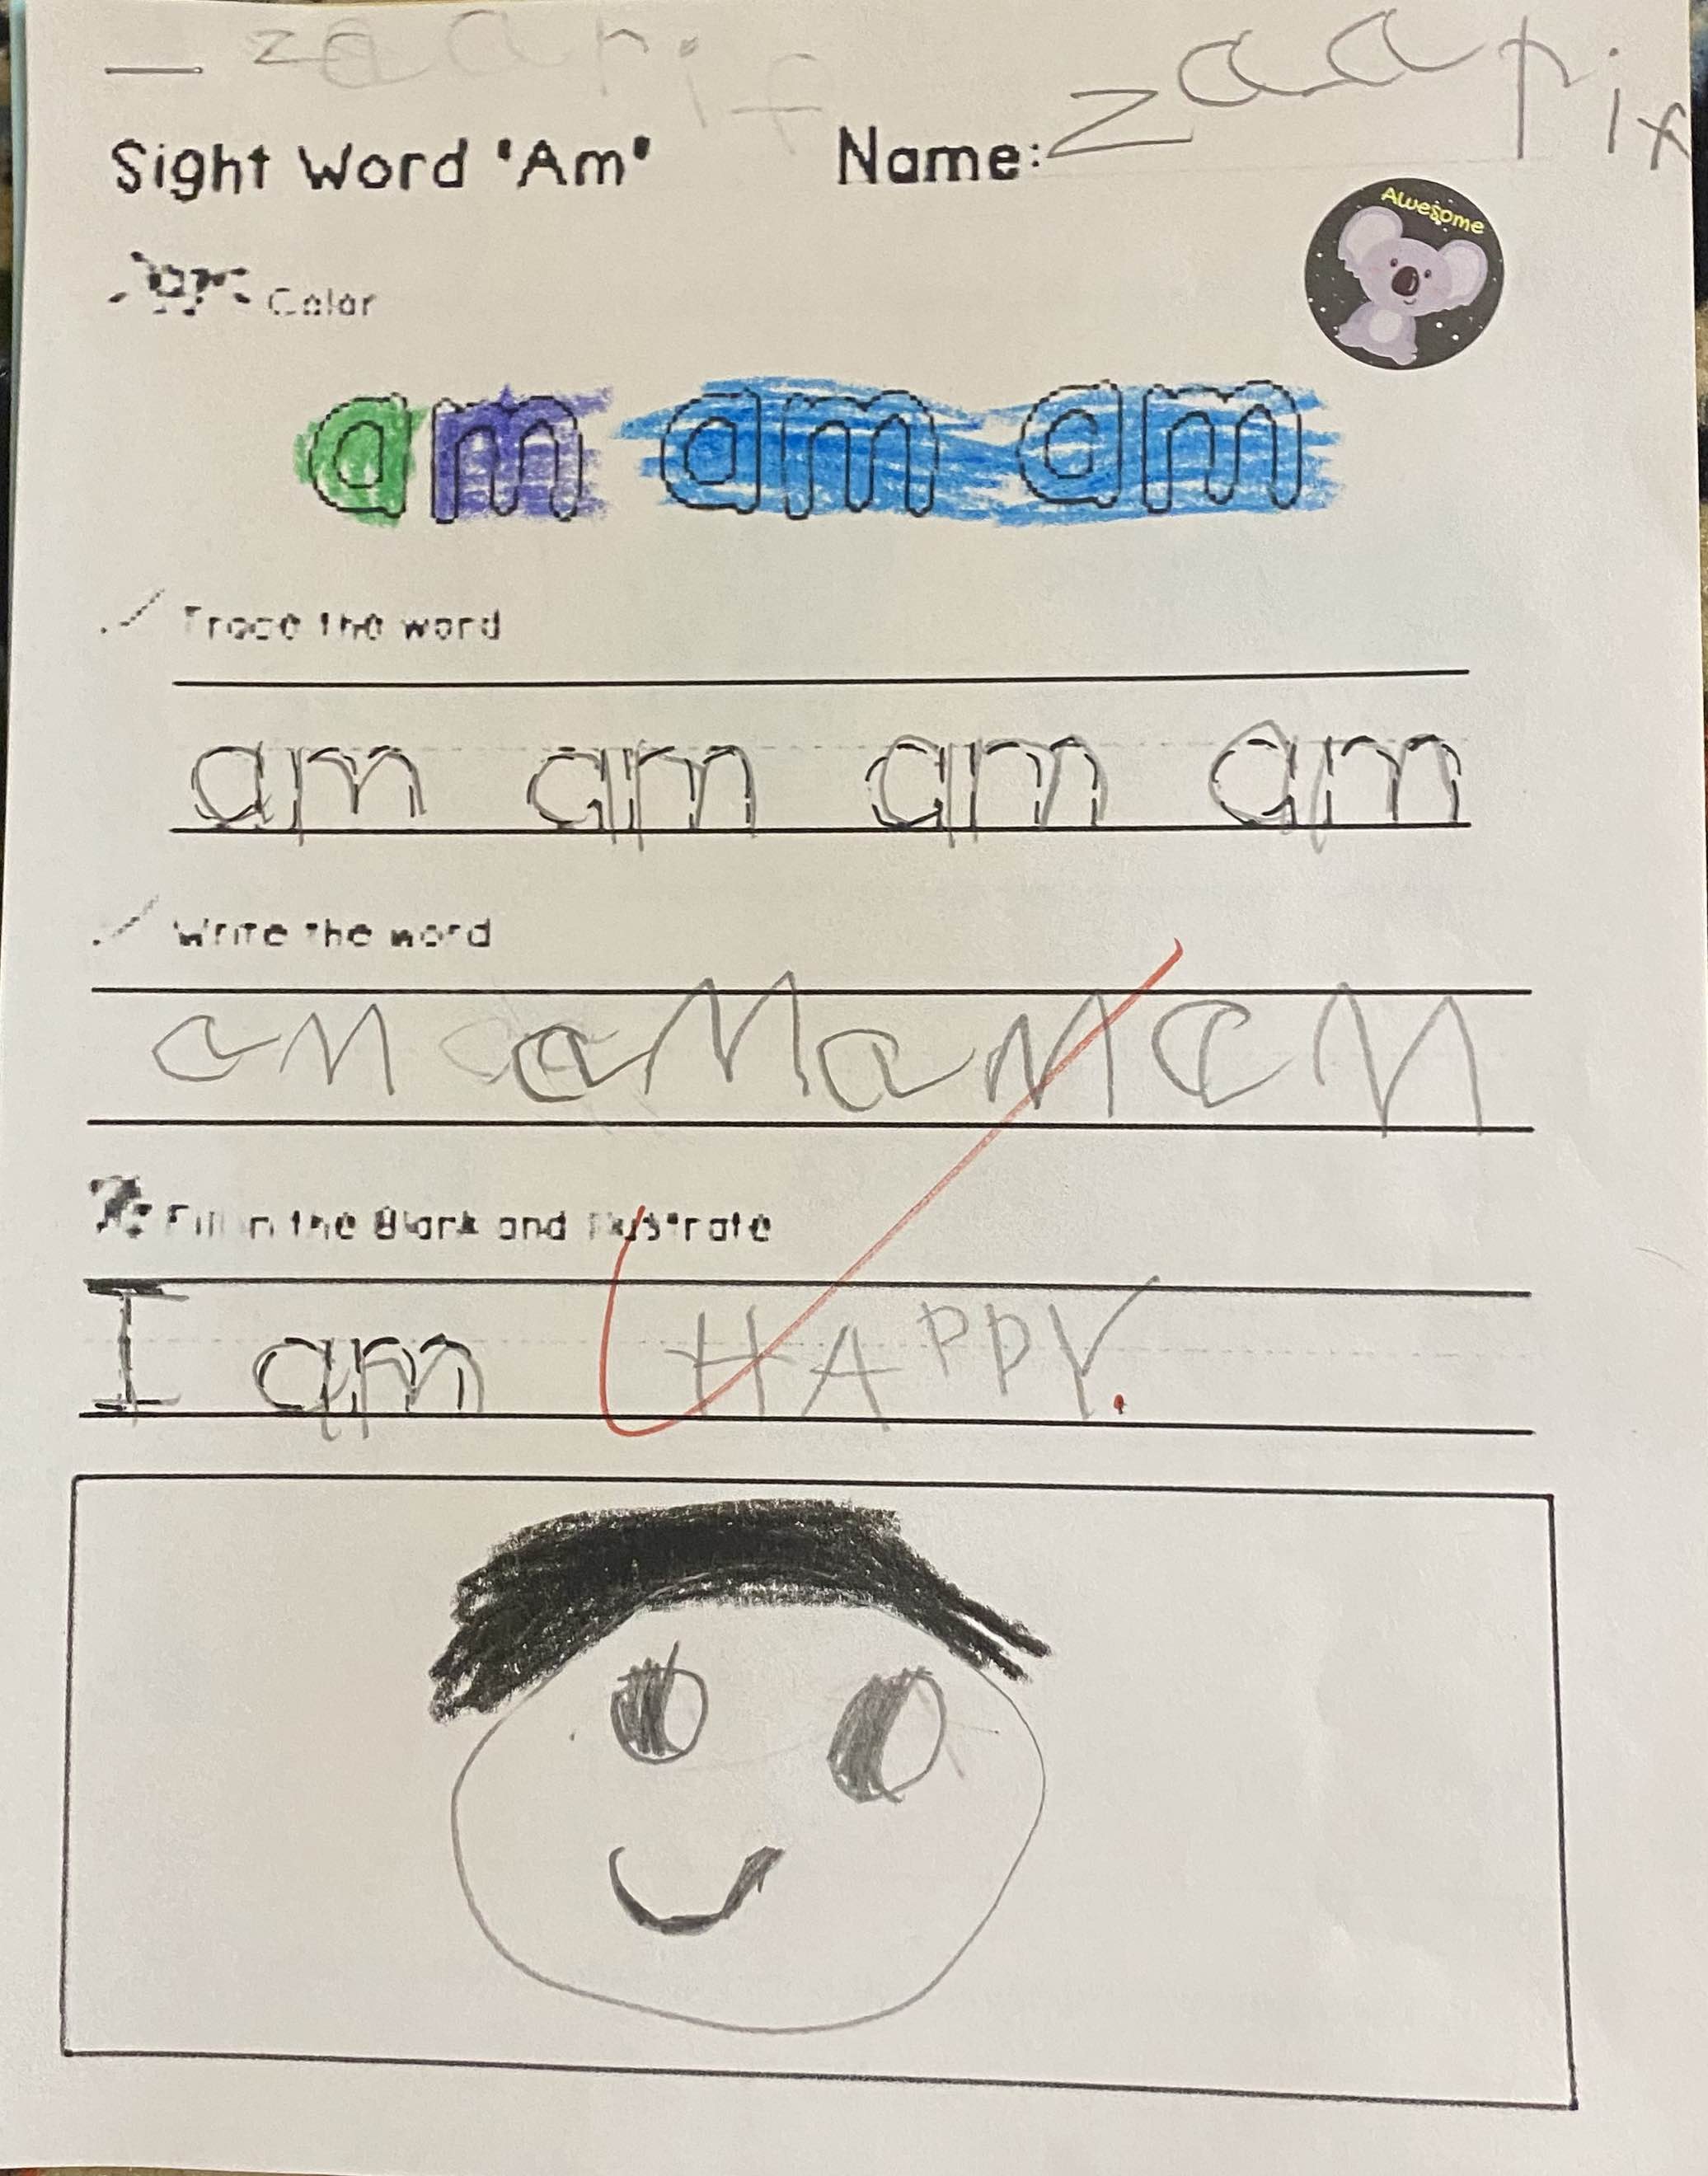 zaarif
Sight Word "Am" Name: zaarif
Awesome
Color
am am am
Trace the word
am am am am
Write the word
aM aM aM aM
Fill in the Blank and Illustrate
I am HAPPY.